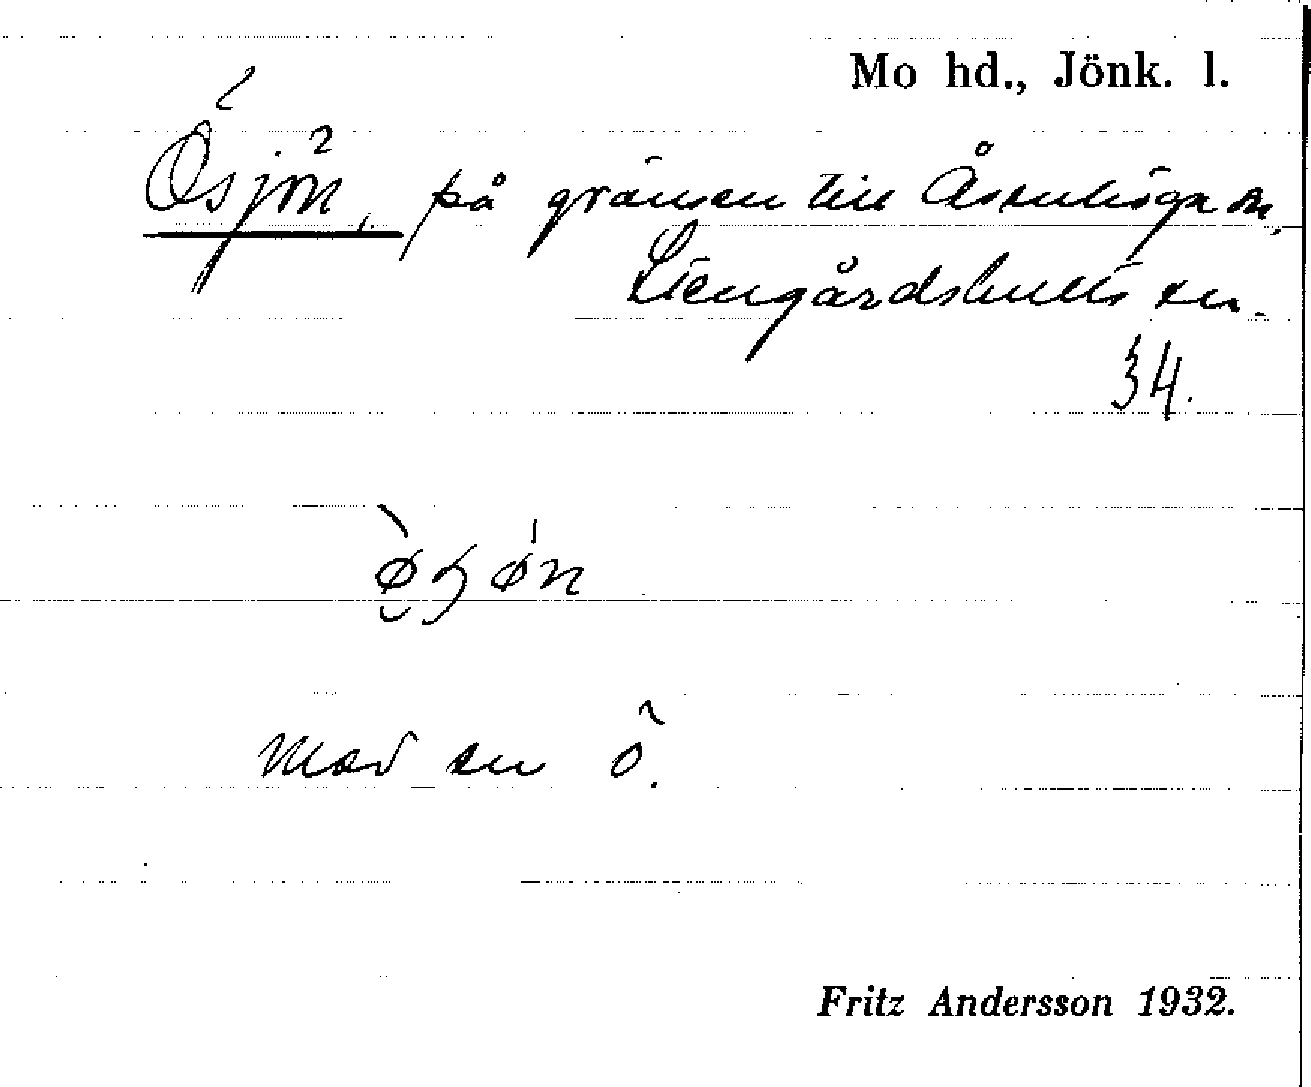 Mo hd., Jönk. l.
Ösjön, på gränsen till Åsenhöga sn,
Stengårdshults sn.
34.
med en ö.
Fritz Andersson 1932.